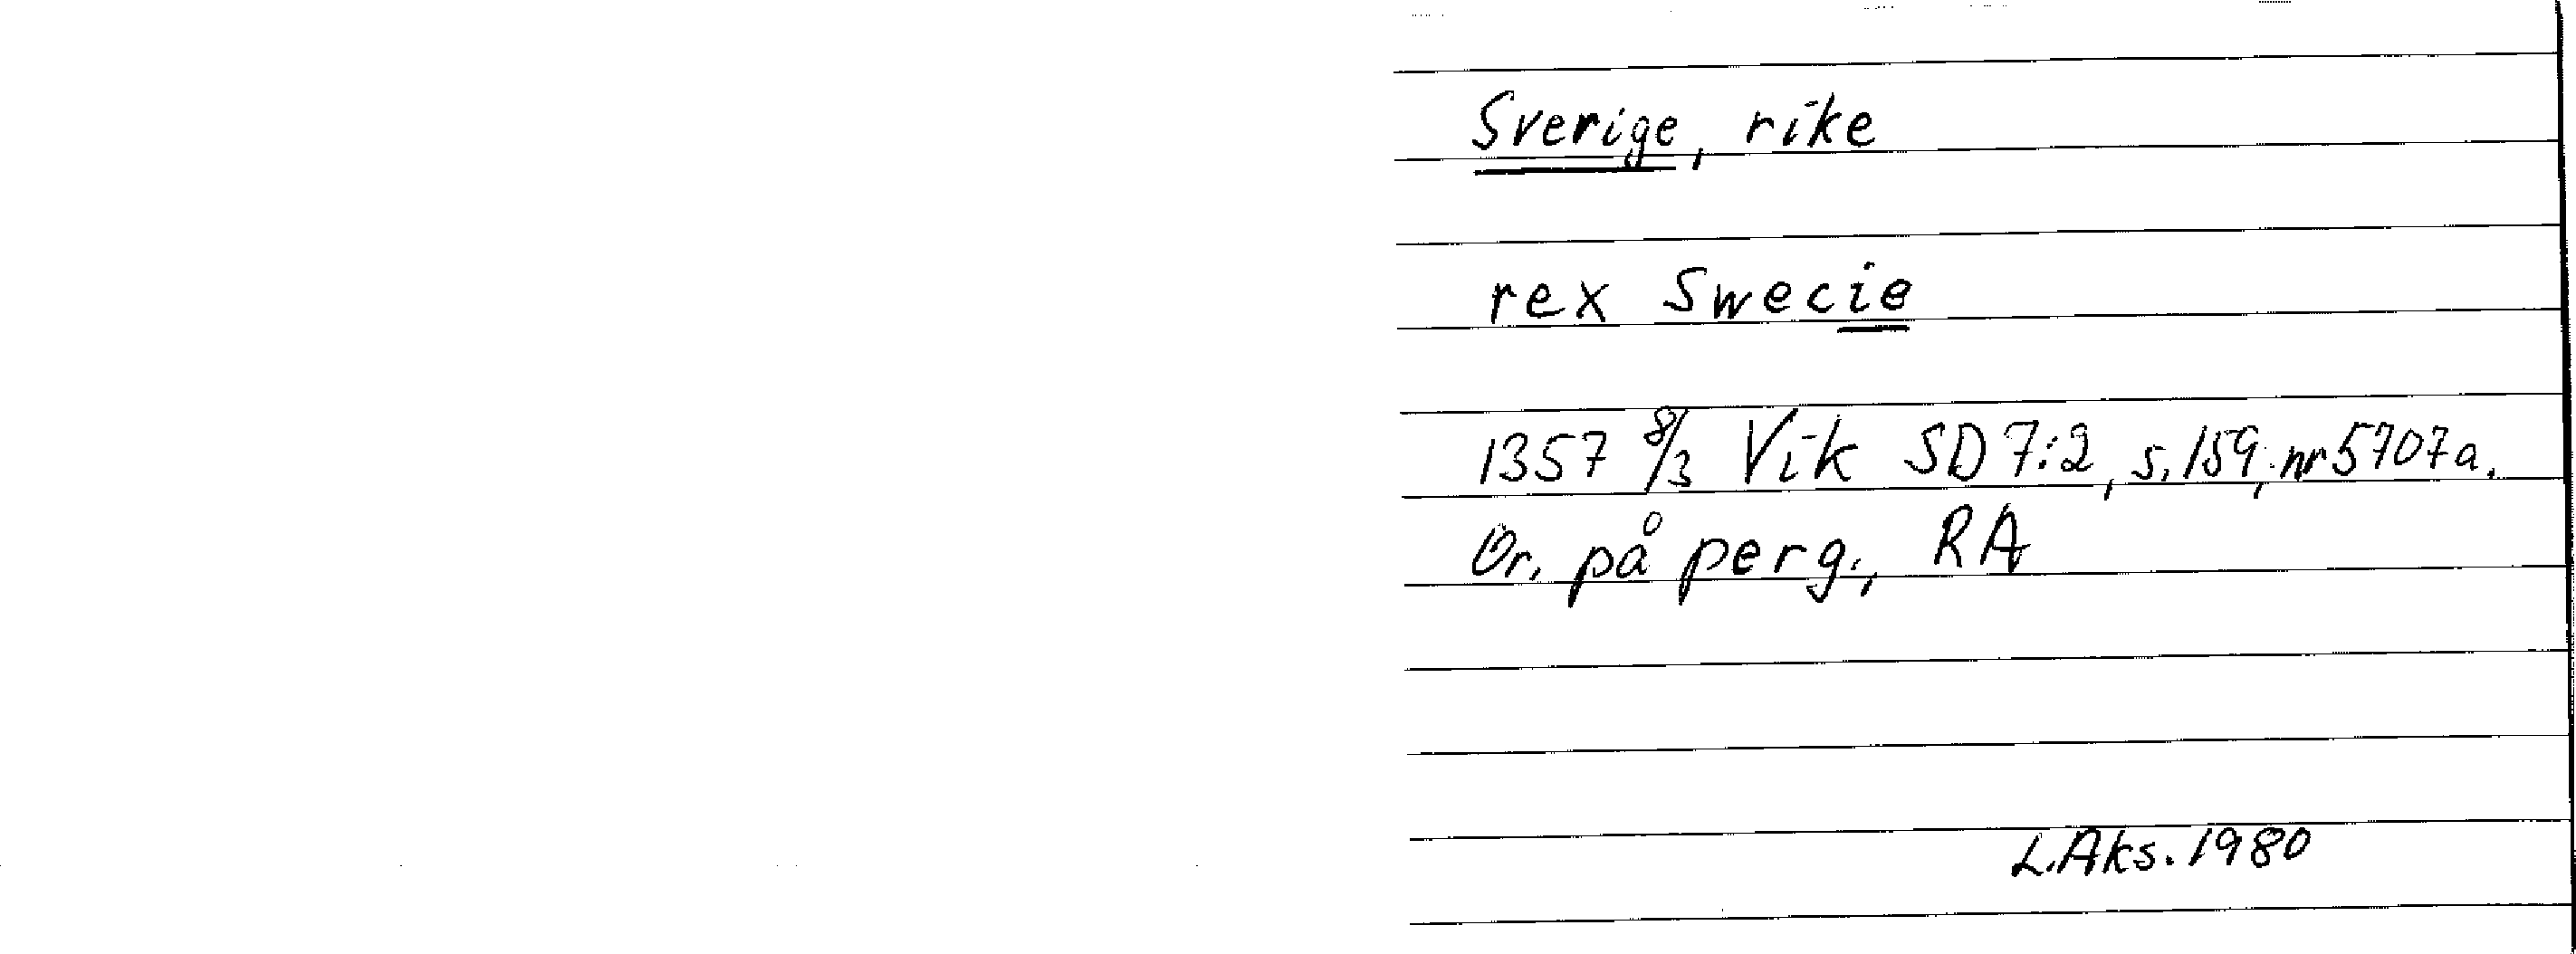 Sverige, rike
rex Swecie
1357 8/3 Vik SD 7:2, s. 159, nr 5707a.
Or. på perg., RA
L.Aks. 1980